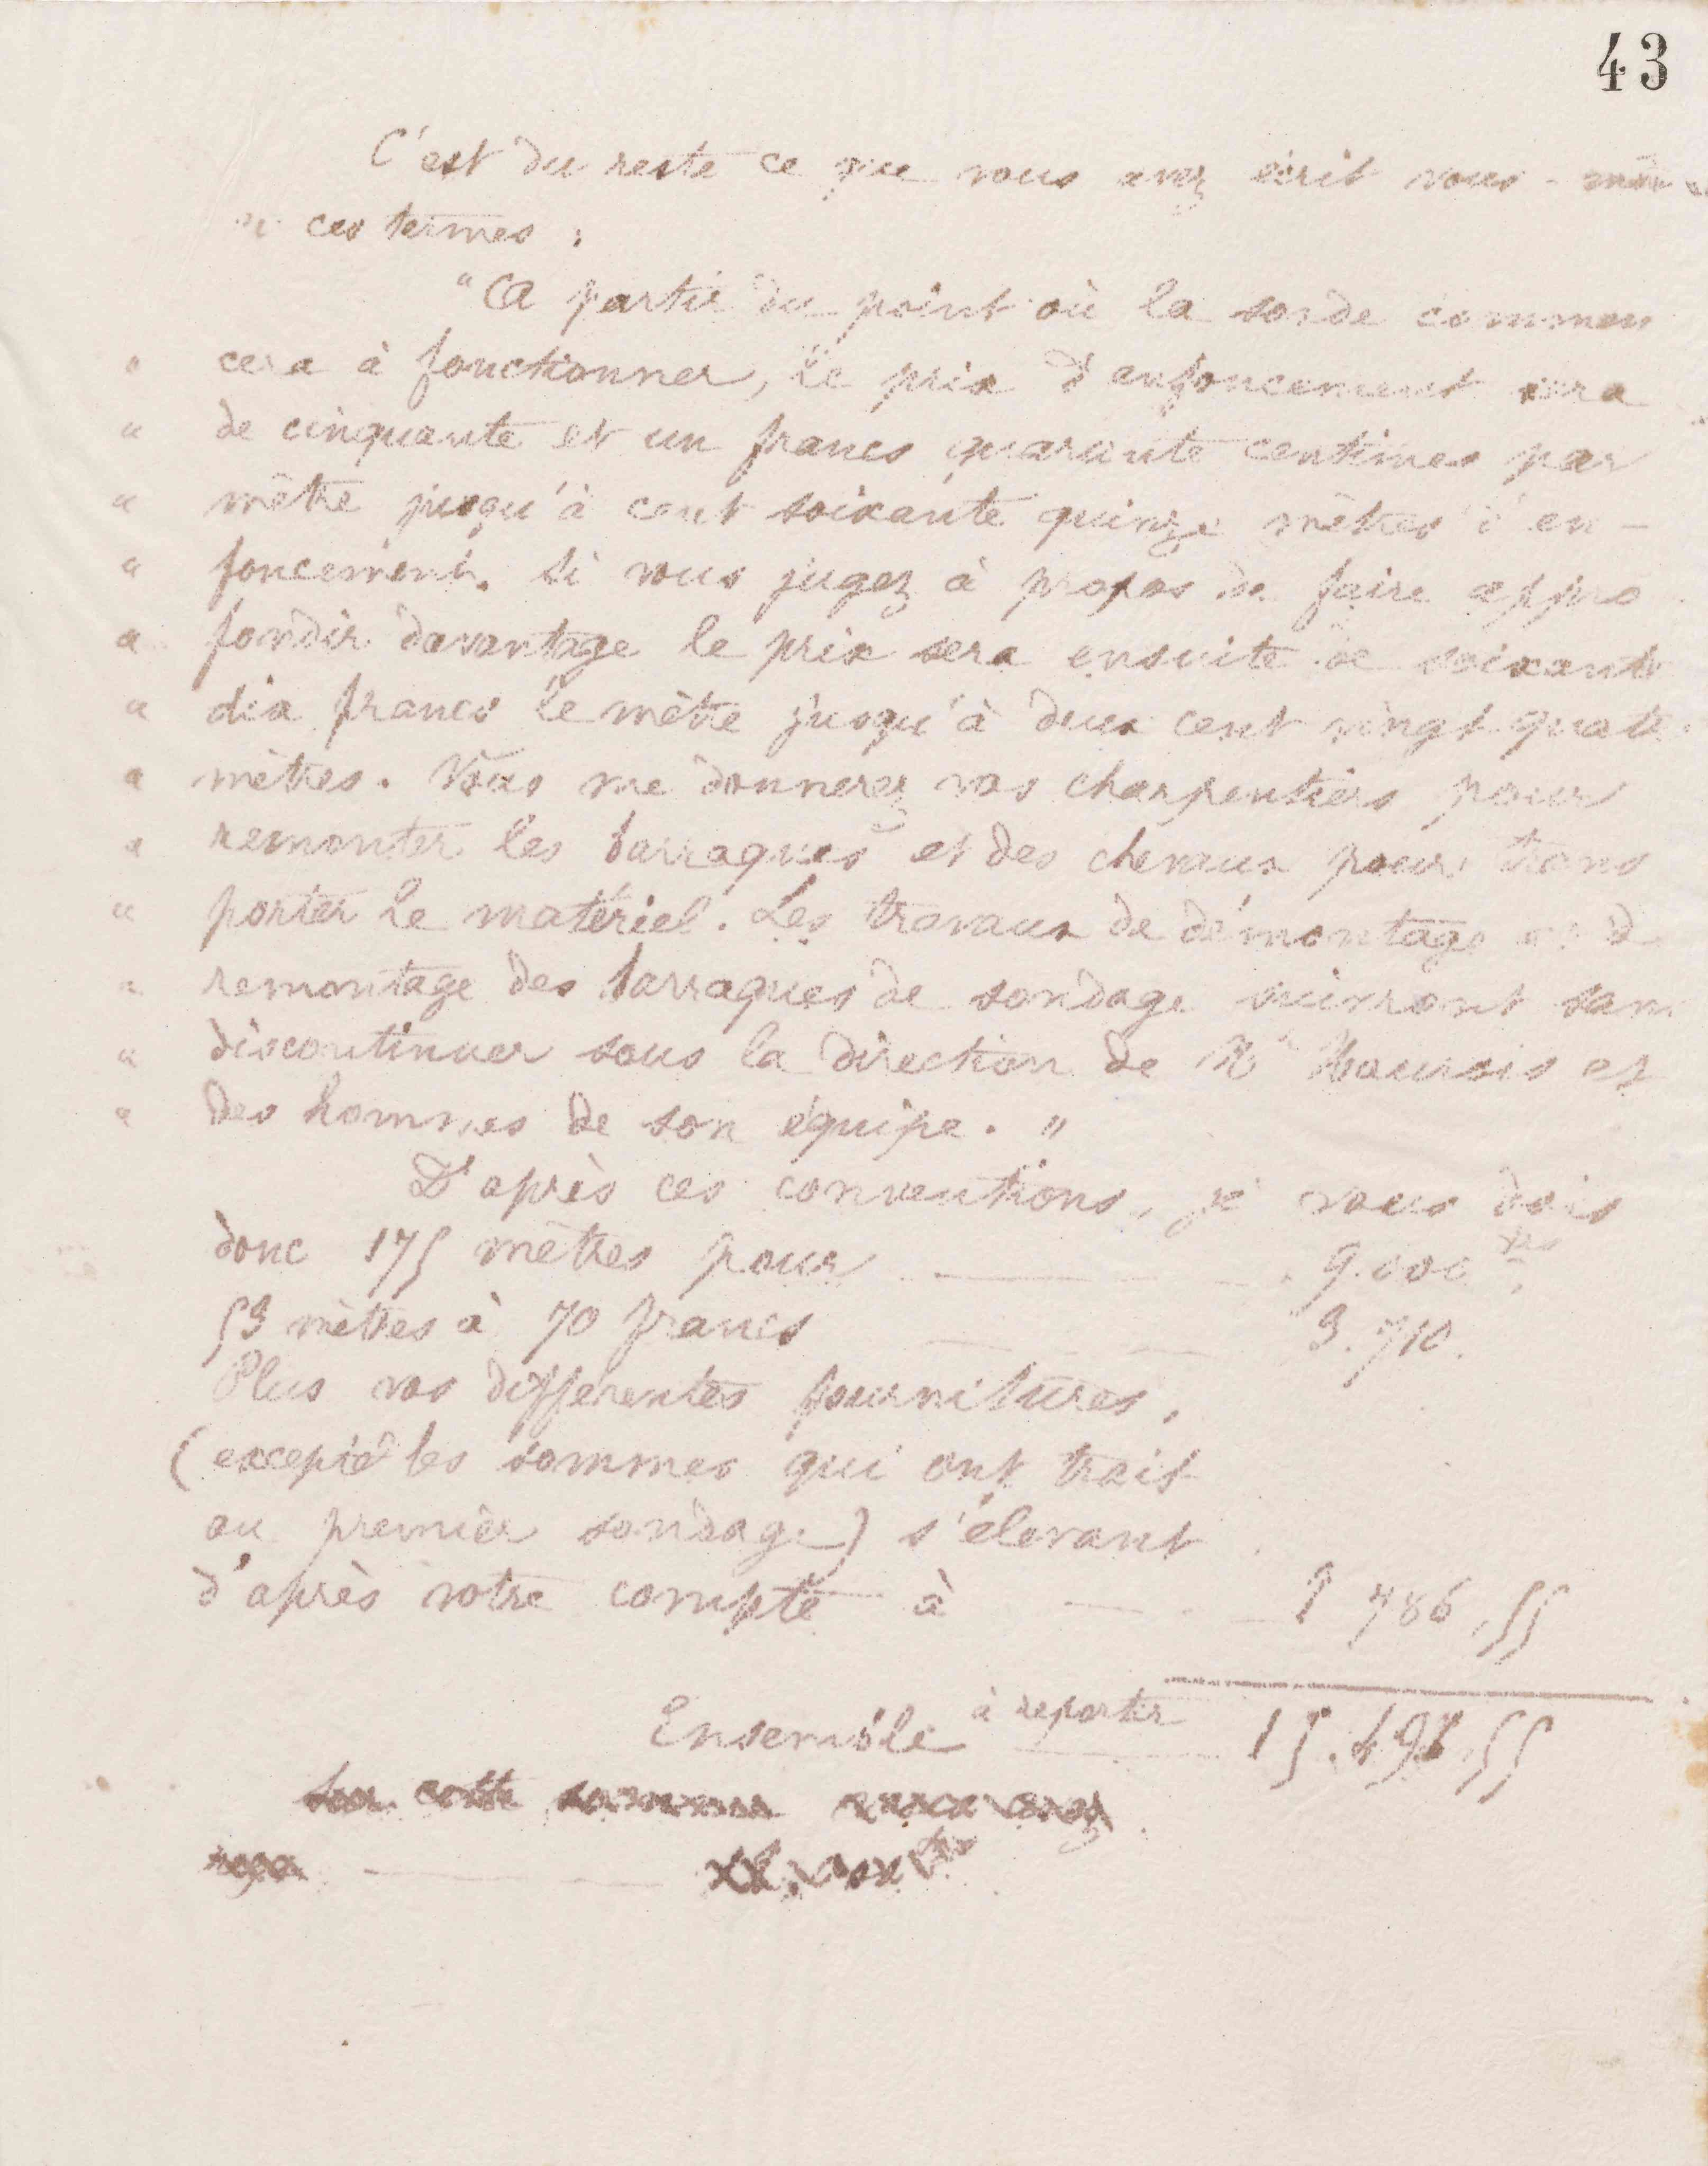 43
C'est du reste ce que vous avez écrit vous-même
ces termes :
"A partir du point où la sonde commen
" cera à fonctionner, le prix d'enfoncement sera
" de cinquante et un francs quarante centimes par
" mètre jusqu'à cent soixante quinze mètres d'en-
" foncement. Si vous jugez à propos de faire appro
" fondir davantage le prix sera ensuite de soixante
" dix francs le mètre jusqu'à deux cent vingt quatre
" mètres. Vous me donnerez vos charpentiers pour
" remonter les barraques et des chevaux pour trans
" porter le matériel. Les travaux de démontage et de
" remontage des barraques de sondage suivront sans
" discontinuer sous la direction de Mr et
" des hommes de son équipe. "
D'après ces conventions, je vous dois
donc 175 mètres pour 9.000 frs
53 mètres à 70 francs 3.710.
Plus vos différentes fournitures,
(excepté les sommes qui ont trait
au premier sondage) s'élevant
d'après votre compte à 786,55
Ensemble à reporter 15.496,55